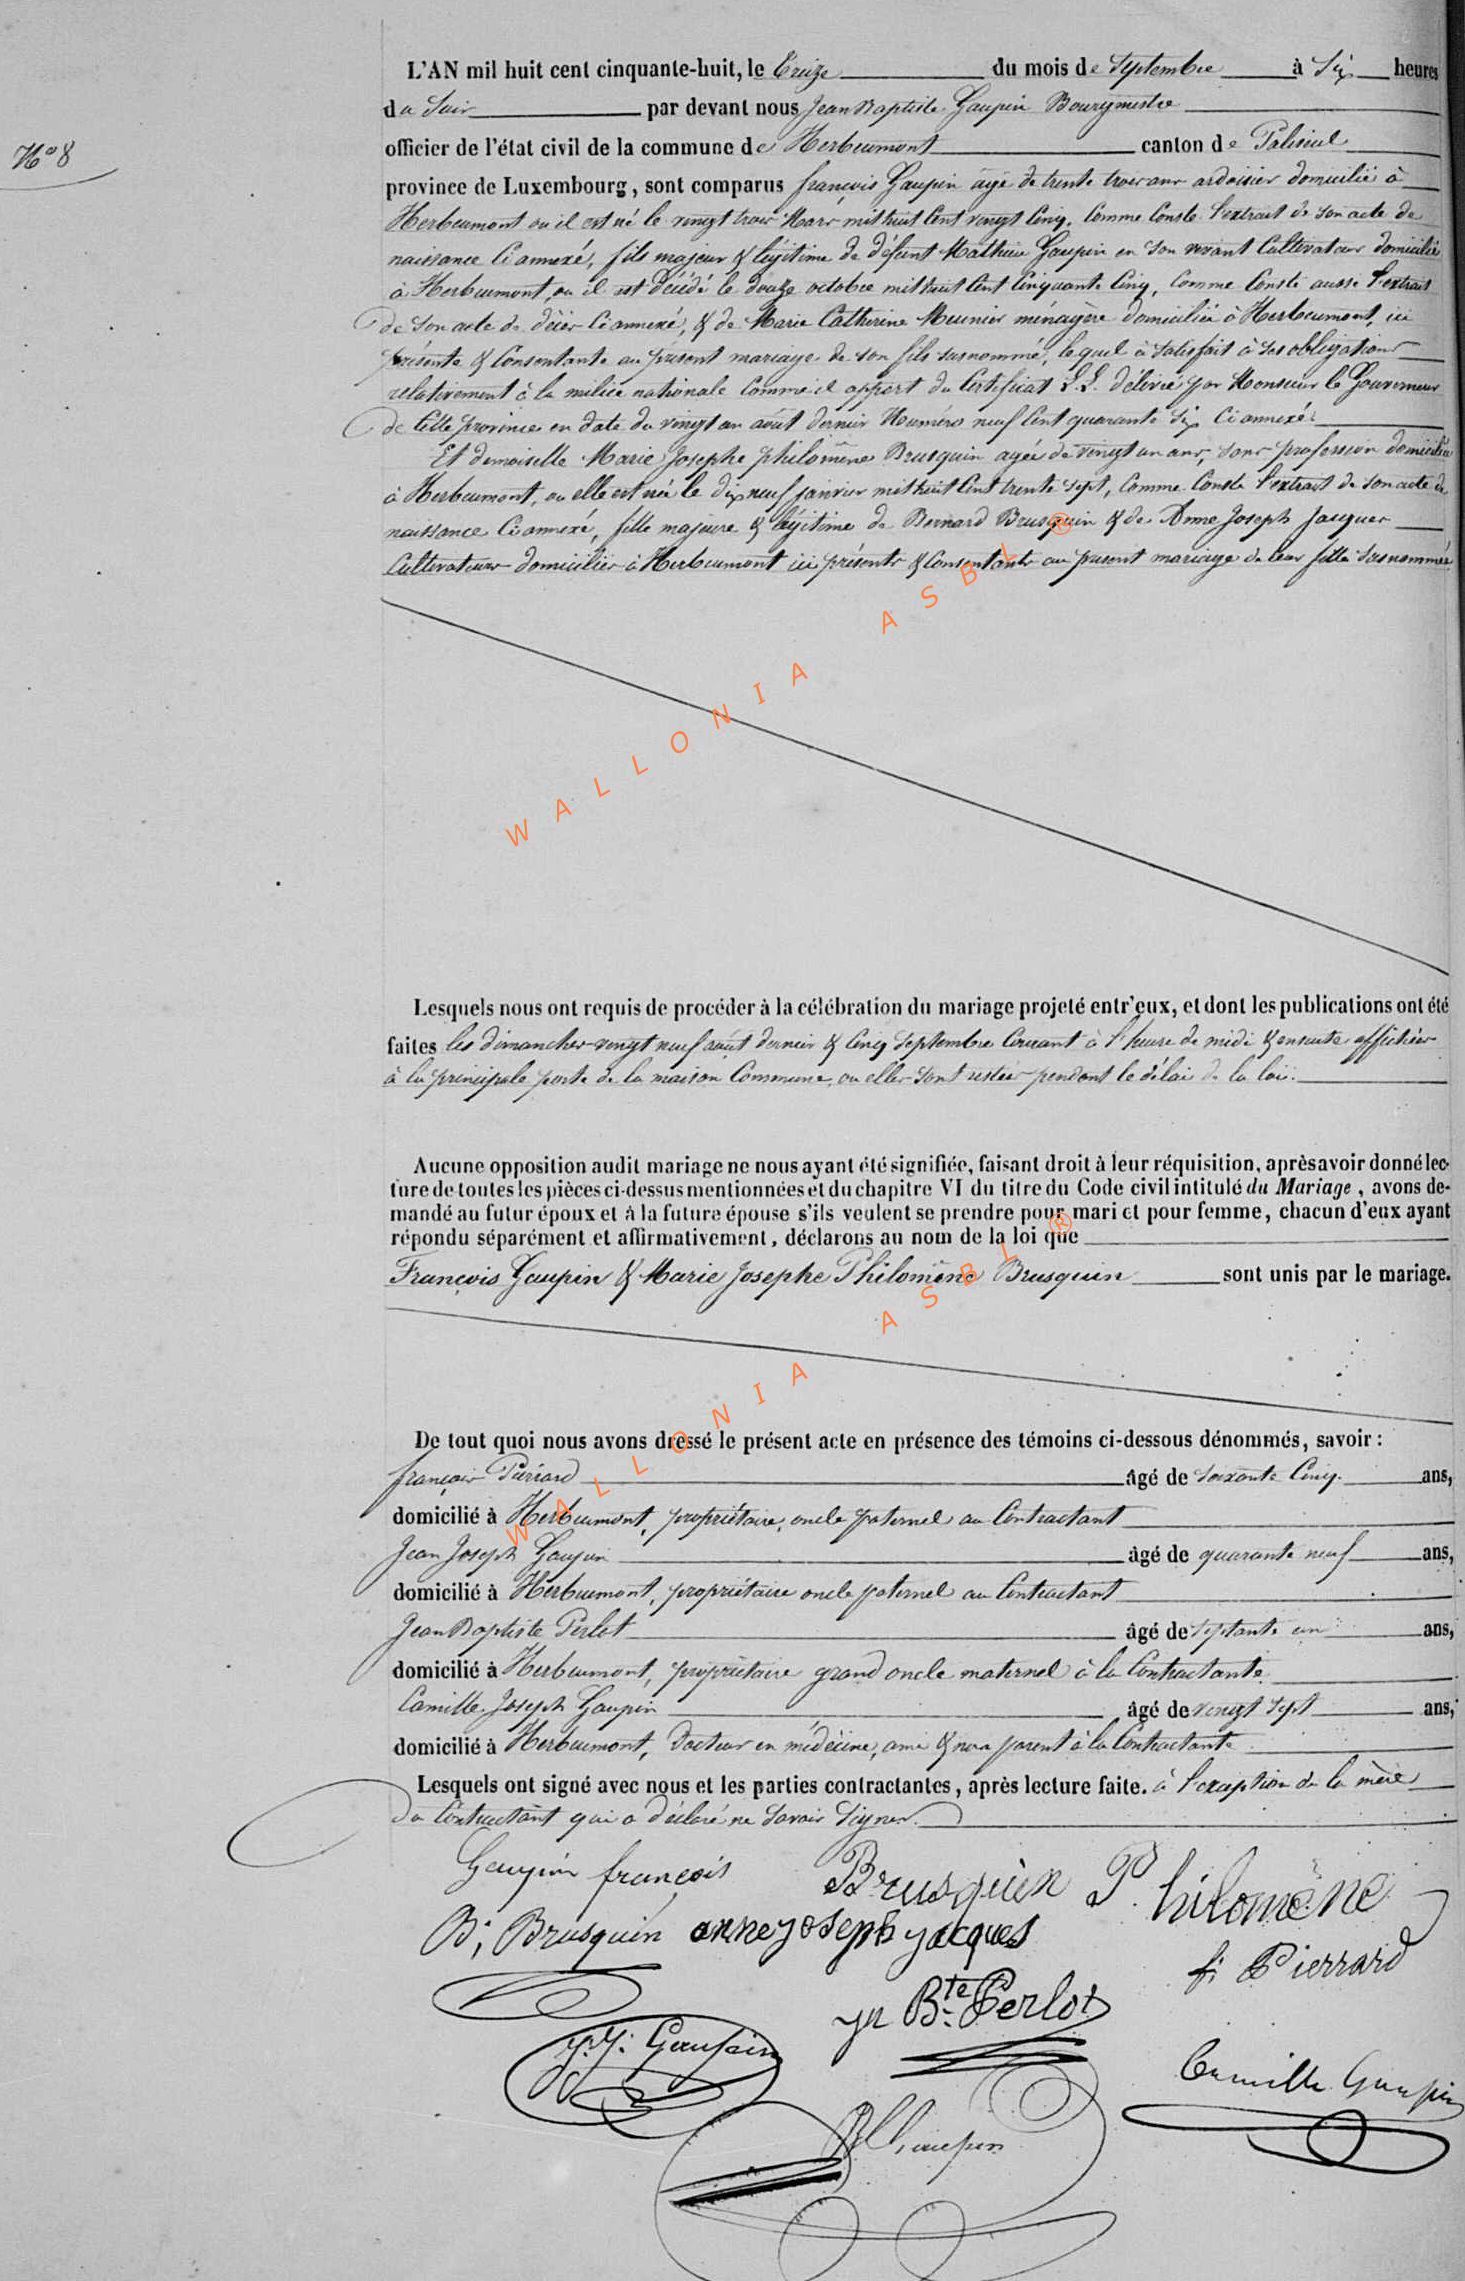 N° 8
L'AN mil huit cent cinquante-huit, le Treize du mois de Septembre à Six heures
du Soir par devant nous Jean Baptiste Gaupin Bourgmestre
officier de l'état civil de la commune de Herbeumont canton de Paliseul
province de Luxembourg, sont comparus françois Gaupin âgé de trente trois ans ardoisier domicilié à
Herbeumont ou il est né le vingt trois Mars mil huit Cent vingt Cinq, Comme Conste l'extrait de son acte de
naissance Ci annexé, fils majeur & légitime de défunt Mathieu Gaupin en son vivant Cultivateur domicilié
à Herbeumont, ou il est décédé le douze octobre mil huit Cent Cinquante Cinq, Comme Conste aussi l'extrait
de son acte de décès Ci annexé, & de Marie Catherine Meunier ménagère domiciliée à Herbeumont, ici
présente & Consentante au présent mariage de son fils susnommé, lequel a satisfait à ses obligations
relativement à la milice nationale Comme il appert du Certificat L.L. délivré par Monsieur le Gouverneur
de Cette province en date du vingt un août dernier Numéro neuf Cent quarante Six Ci annexé.
Et demoiselle Marie Josephe philomène Brusquin agée de vingt un ans, sans profession domiciliée
à Herbeumont, ou elle est née le dix neuf janvier mil huit Cent trente sept, Comme Conste l'extrait de son acte de
naissance Ci annexé, fille majeure & légitime de Bernard Brusquin & de Anne Joseph Jacques
Cultivateurs domiciliés à Herbeumont ici présents & Consentants au présent mariage de leur fille susnommée
WALLONIA ASBL ®
Lesquels nous ont requis de procéder à la célébration du mariage projeté entr'eux, et dont les publications ont été
faites les dimanches vingt neuf août dernier & Cinq Septembre Courant à l'heure de midi & ensuite affichées
à la principale porte de la maison Commune, ou elles sont restées pendant le délai de la loi.
Aucune opposition audit mariage ne nous ayant été signifiée, faisant droit à leur réquisition, après avoir donné lec-
ture de toutes les pièces ci-dessus mentionnées et du chapitre VI du titre du Code civil intitulé du Mariage, avons de-
mandé au futur époux et à la future épouse s'ils veulent se prendre pour mari et pour femme, chacun d'eux ayant
répondu séparément et affirmativement, déclarons au nom de la loi que
François Gaupin & Marie Josephe Philomène Brusquin sont unis par le mariage.
WALLONIA ASBL ®
De tout quoi nous avons dressé le présent acte en présence des témoins ci-dessous dénommés, savoir :
françois Piérard âgé de soixante Cinq ans,
domicilié à Herbeumont, propriétaire, oncle paternel au Contractant
Jean Joseph Gaupin âgé de quarante neuf ans,
domicilié à Herbeumont, propriétaire oncle paternel au Contractant
Jean Baptiste Perlot âgé de Septante un ans,
domicilié à Herbeumont, propriétaire grand oncle maternel à la Contractante
Camille Joseph Gaupin âgé de vingt sept ans,
domicilié à Herbeumont, Docteur en médecine, ami & non parent à la Contractante
Lesquels ont signé avec nous et les parties contractantes, après lecture faite. à l'exception de la mère
du Contractant qui a déclaré ne savoir signer.
Gaupin françois Brusquin Philomène
B; Brusquin anne joseph jacques
f; Pierrard
jn Bte Perlot
J. J. Gaupin
Camille Gaupin
Gaupin